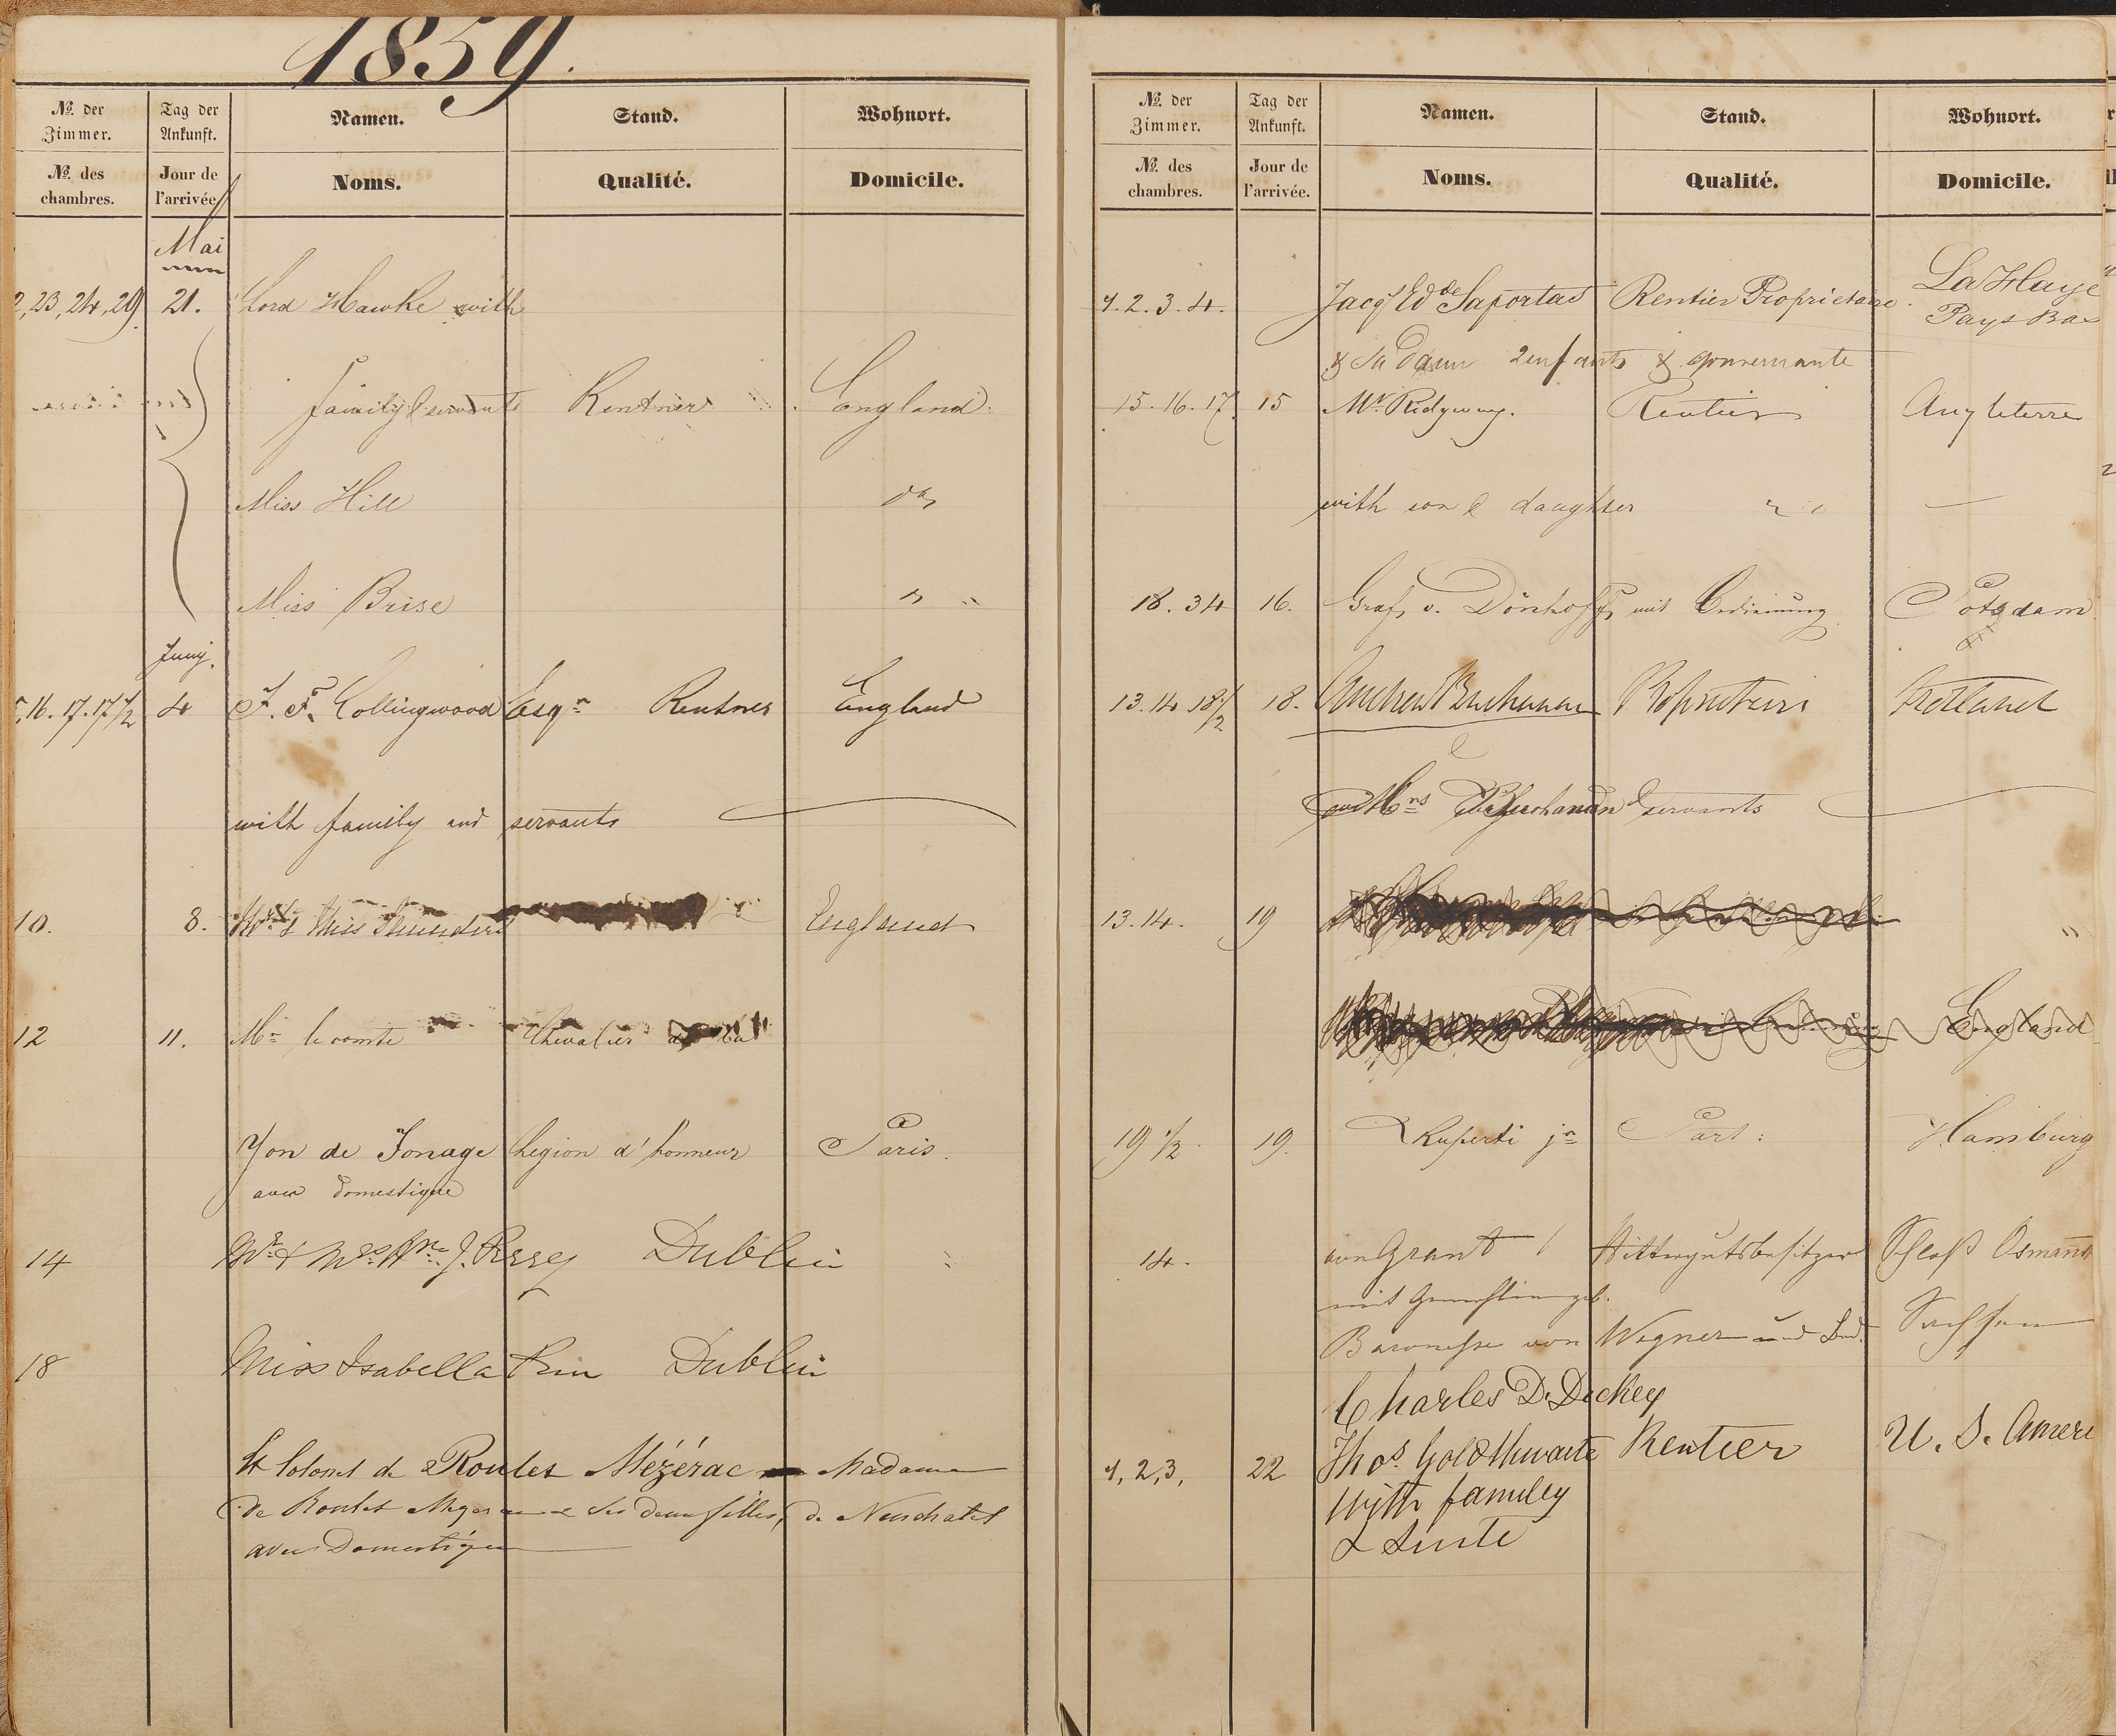 1859.
No. der Zimmer. Tag der Ankunft. Namen. Stand. Wohnort.
No. des chambres. Jour de l'arrivée. Noms. Qualité. Domicile.
Mai
23, 24, 29. 21. Lord Hawke with
family & servants Rentner England
Miss Hill do
Miss Brise "
Juny.
16. 17. 17 1/2 4 F. F. Collingwood Esqr Rentner England
with family and servants
10. 8. & Miss England
12 11. Mr le comte Chevalier de la
Yon de Jonage Légion d'honneur Paris.
avec domestique
14 Mr & Mrs Wm J. Dublin
18 Miss Isabella Dublin
Lt Colonel de Roulet Mézérac Madame
de Roulet & ses deux filles, de Neuchatel
avec Domestique
No. der Zimmer. Tag der Ankunft. Namen. Stand. Wohnort.
No. des chambres. Jour de l'arrivée. Noms. Qualité. Domicile.
1. 2. 3. 4. Jacqs Ed de Saportas Rentier Proprietaire. La Haye
Pays Bas
& sa Dame 2 enfants & gouvernante
15. 16. 17. 15 Mr Ridgway. Rentier Angleterre
with son & daughter
18. 34 16. Graf v. Dönhoff mit Bedienung Potsdam
13. 14 18 1/2 18. Andrew Buchanan
&
Mrs Buchanan & servants
13. 14. 19 "
England
19 1/2. 19. Ruperti jr Part: Hamburg
14. von Grant Rittergutsbesitzer Schloß
mit Gemahlin geb.
Baronesse von Wegner und Bed. Sachsen
Charles D. Dickey
1, 2, 3, 22 Thos. Goldthwaite Rentier U. S. Ameri
With familey
& Suite